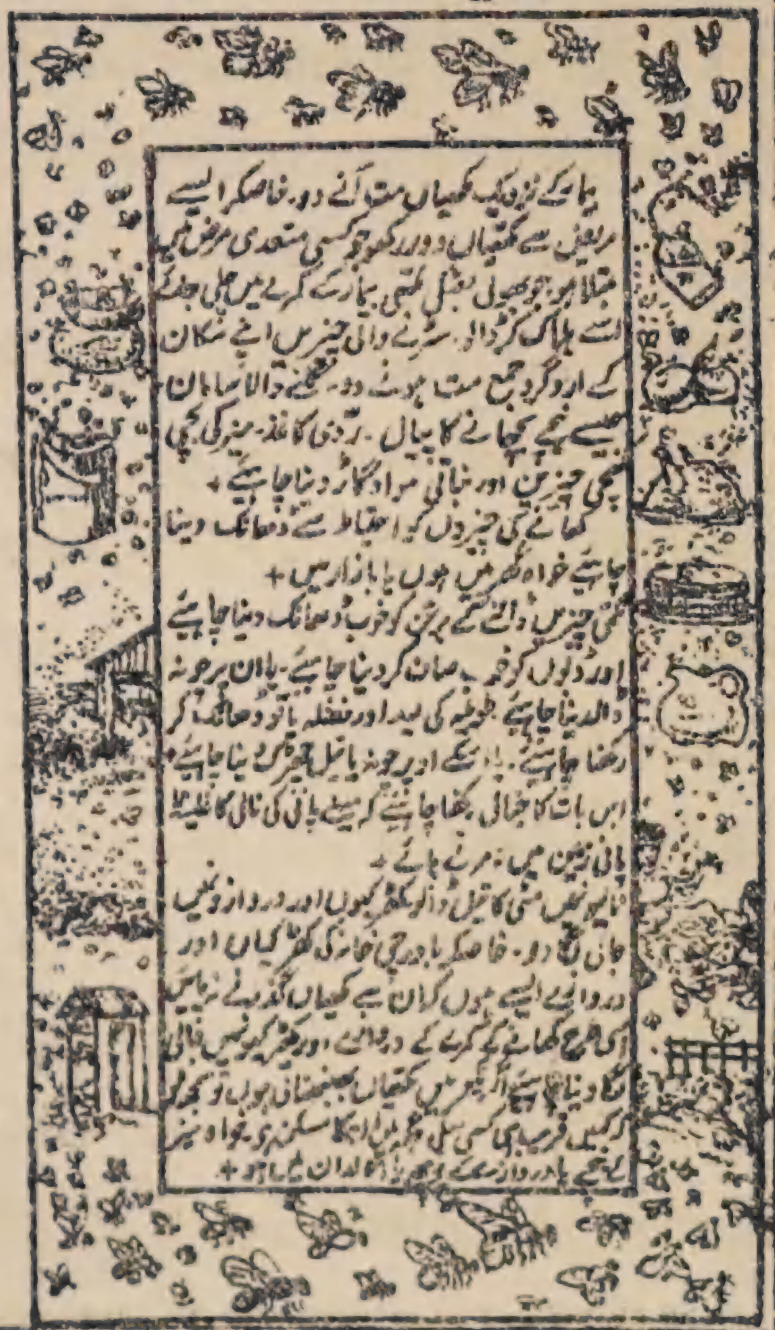 بیمار کے نزدیک مکھیاں مت آنے دو۔ خاصکر ایسے
مریض سے مکھیاں دور رکھو جو کسی متعدی مرض میں
مبتلا ہو جو بھولی بھٹکی مکھی بیمار کے کمرے میں چلی جائے
اُسے ہلاک کر ڈالو۔ سڑنے والی چیزیں اپنے مکان
کے اردگرد جمع مت ہونے دو۔ والا سامان
جیسے نیچے بچھانے کا پیال۔ ردّی کاغذ۔ میز کی بچی
کھچی چیزیں اور نباتی مواد گاڑ دینا چاہیئے +
کھانے کی چیزوں کو احتیاط سے ڈھانک دینا
چاہیئے خواہ گھر میں ہوں یا بازار میں +
نکمّی چیزیں ڈالنے کے برتن کو خوب ڈھانک دینا چاہیئے
اور ڈولوں کو خوب صاف کر دینا چاہیئے۔ یا ان پر چونہ
ڈالدینا چاہیئے طویلہ کی لید اور فضلہ یا تو ڈھانک کر
رکھنا چاہیئے۔ یا اسکے اوپر چونہ یا تیل چھڑک دینا چاہیئے
اس بات کا خیال رکھنا چاہیئے کہ میلے پانی کی نالی کا غلیظ
پانی زمین میں نہ مرنے پائے +
نالیونمیں مٹی کا تیل ڈالو کھڑکیوں اور دروازونمیں
جالی لگا دو۔ خاصکر باورچی خانہ کی کھڑکیاں اور
دروازے ایسے ہوں کہ ان سے مکھیاں گذرنے نہ پائیں
اسی طرح کھانے کے کمرے کے دروازے اور کھڑکیونمیں جالی
لگا دینا چاہیئے اگر گھر میں مکھیاں بھنبھناتی ہوں تو سمجھو
کہ کہیں قریب ہی کسی میلی جگہ میں ان کا مسکن ہے خواہ میز
کے نیچے یا دروازے کے پیچھے یا اگالدان میں ہو +